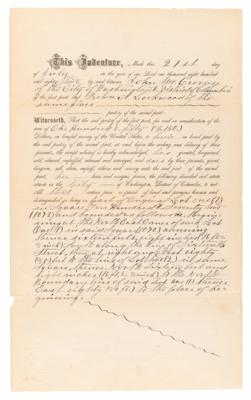 This Indenture, Made this 21st day
of July in the year of our Lord one thousand eight hundred
and eighty by and between John McCrory
of the City of Washington District of Columbia
of the first part, and Belva A. Lockwood of the
same place
party of the second part:
Witnesseth, That the said party of the first part, for and in consideration of the
sum of One Hundred & fifty ($150)
Dollars, in lawful money of the United States, to him in hand paid by
the said party of the second part, at and before the sealing and delivery of these
presents, the receipt whereof is hereby acknowledged, has granted, bargained and
sold, aliened, enfeoffed, released and conveyed, and does by these presents, grant, bargain,
and sell, alien, enfeoff, release and convey unto the said party of the second
part, her heirs and assigns forever, the following described real estate
situate in the City of Washington, District of Columbia, to wit:
All that certain piece or parcel of land and premises known and
distinguished as being part of Original Lot one (1)
in Square Ten Hundred & Seventy two
(1072) and bounded as follows. Beginning
at the North East Corner of said Lot
One (1) in said Square (1072) & running
thence sixteen feet eight inches (16 feet
8 inch) South along the line of Sixteenth
Street, thence at right angles West eighty
(80) feet to the line of Lot two (2) in same
Square, thence North sixteen feet and
eight inches (16 feet 8 inch) to the North
Boundary line of said Lot one (1) thence
East eighty (80 feet) to the place of be-
ginning.